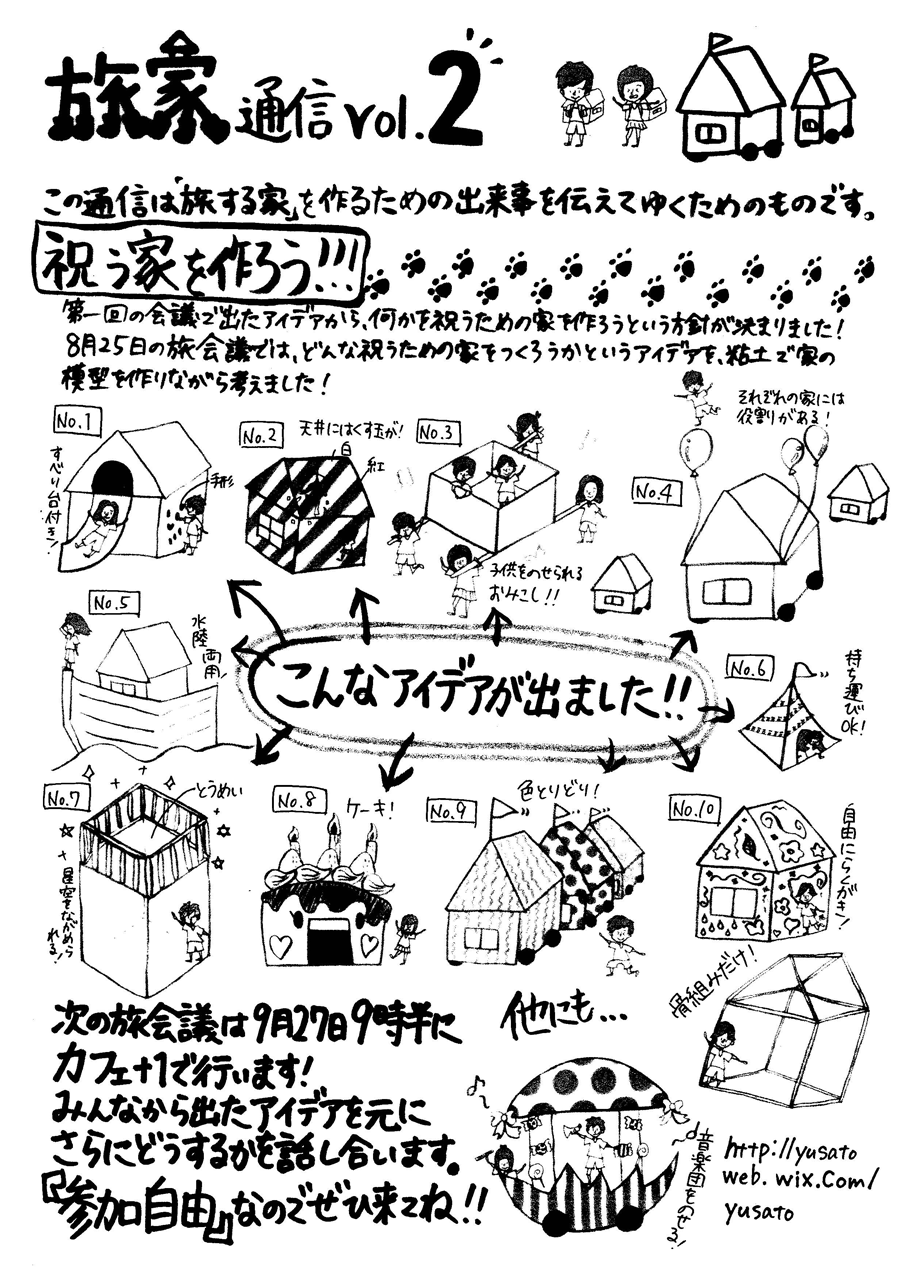 旅家通信 vol.2
この通信は「旅する家」を作るための出来事を伝えてゆくためのものです。
祝う家を作ろう!!!
第一回の会議で出たアイデアから、何かを祝うための家を作ろうという方針が決まりました!
8月25日の旅会議では、どんな祝うための家をつくろうかというアイデアを、粘土で家の
模型を作りながら考えました!
それぞれの家には
役割りがある!
No.1
すべり台付き!
手形
No.2
天井にはくす玉が!
白
紅
No.3
子供をのせられる
おみこし!!
No.4
No.5
水陸両用!
こんなアイデアが出ました!!
No.6
持ち運びOK!
No.7
とうめい
星空をながめら
れる!
No.8
ケーキ!
No.9
色とりどり!
No.10
自由にらくがき!
次の旅会議は9月27日9時半に
カフェ+1で行います!
みんなから出たアイデアを元に
さらにどうするかを話し合います。
『参加自由』なのでぜひ来てね!!
他にも...
骨組みだけ!
音楽団をのせる!
http://yusato
web.wix.com/
yusato